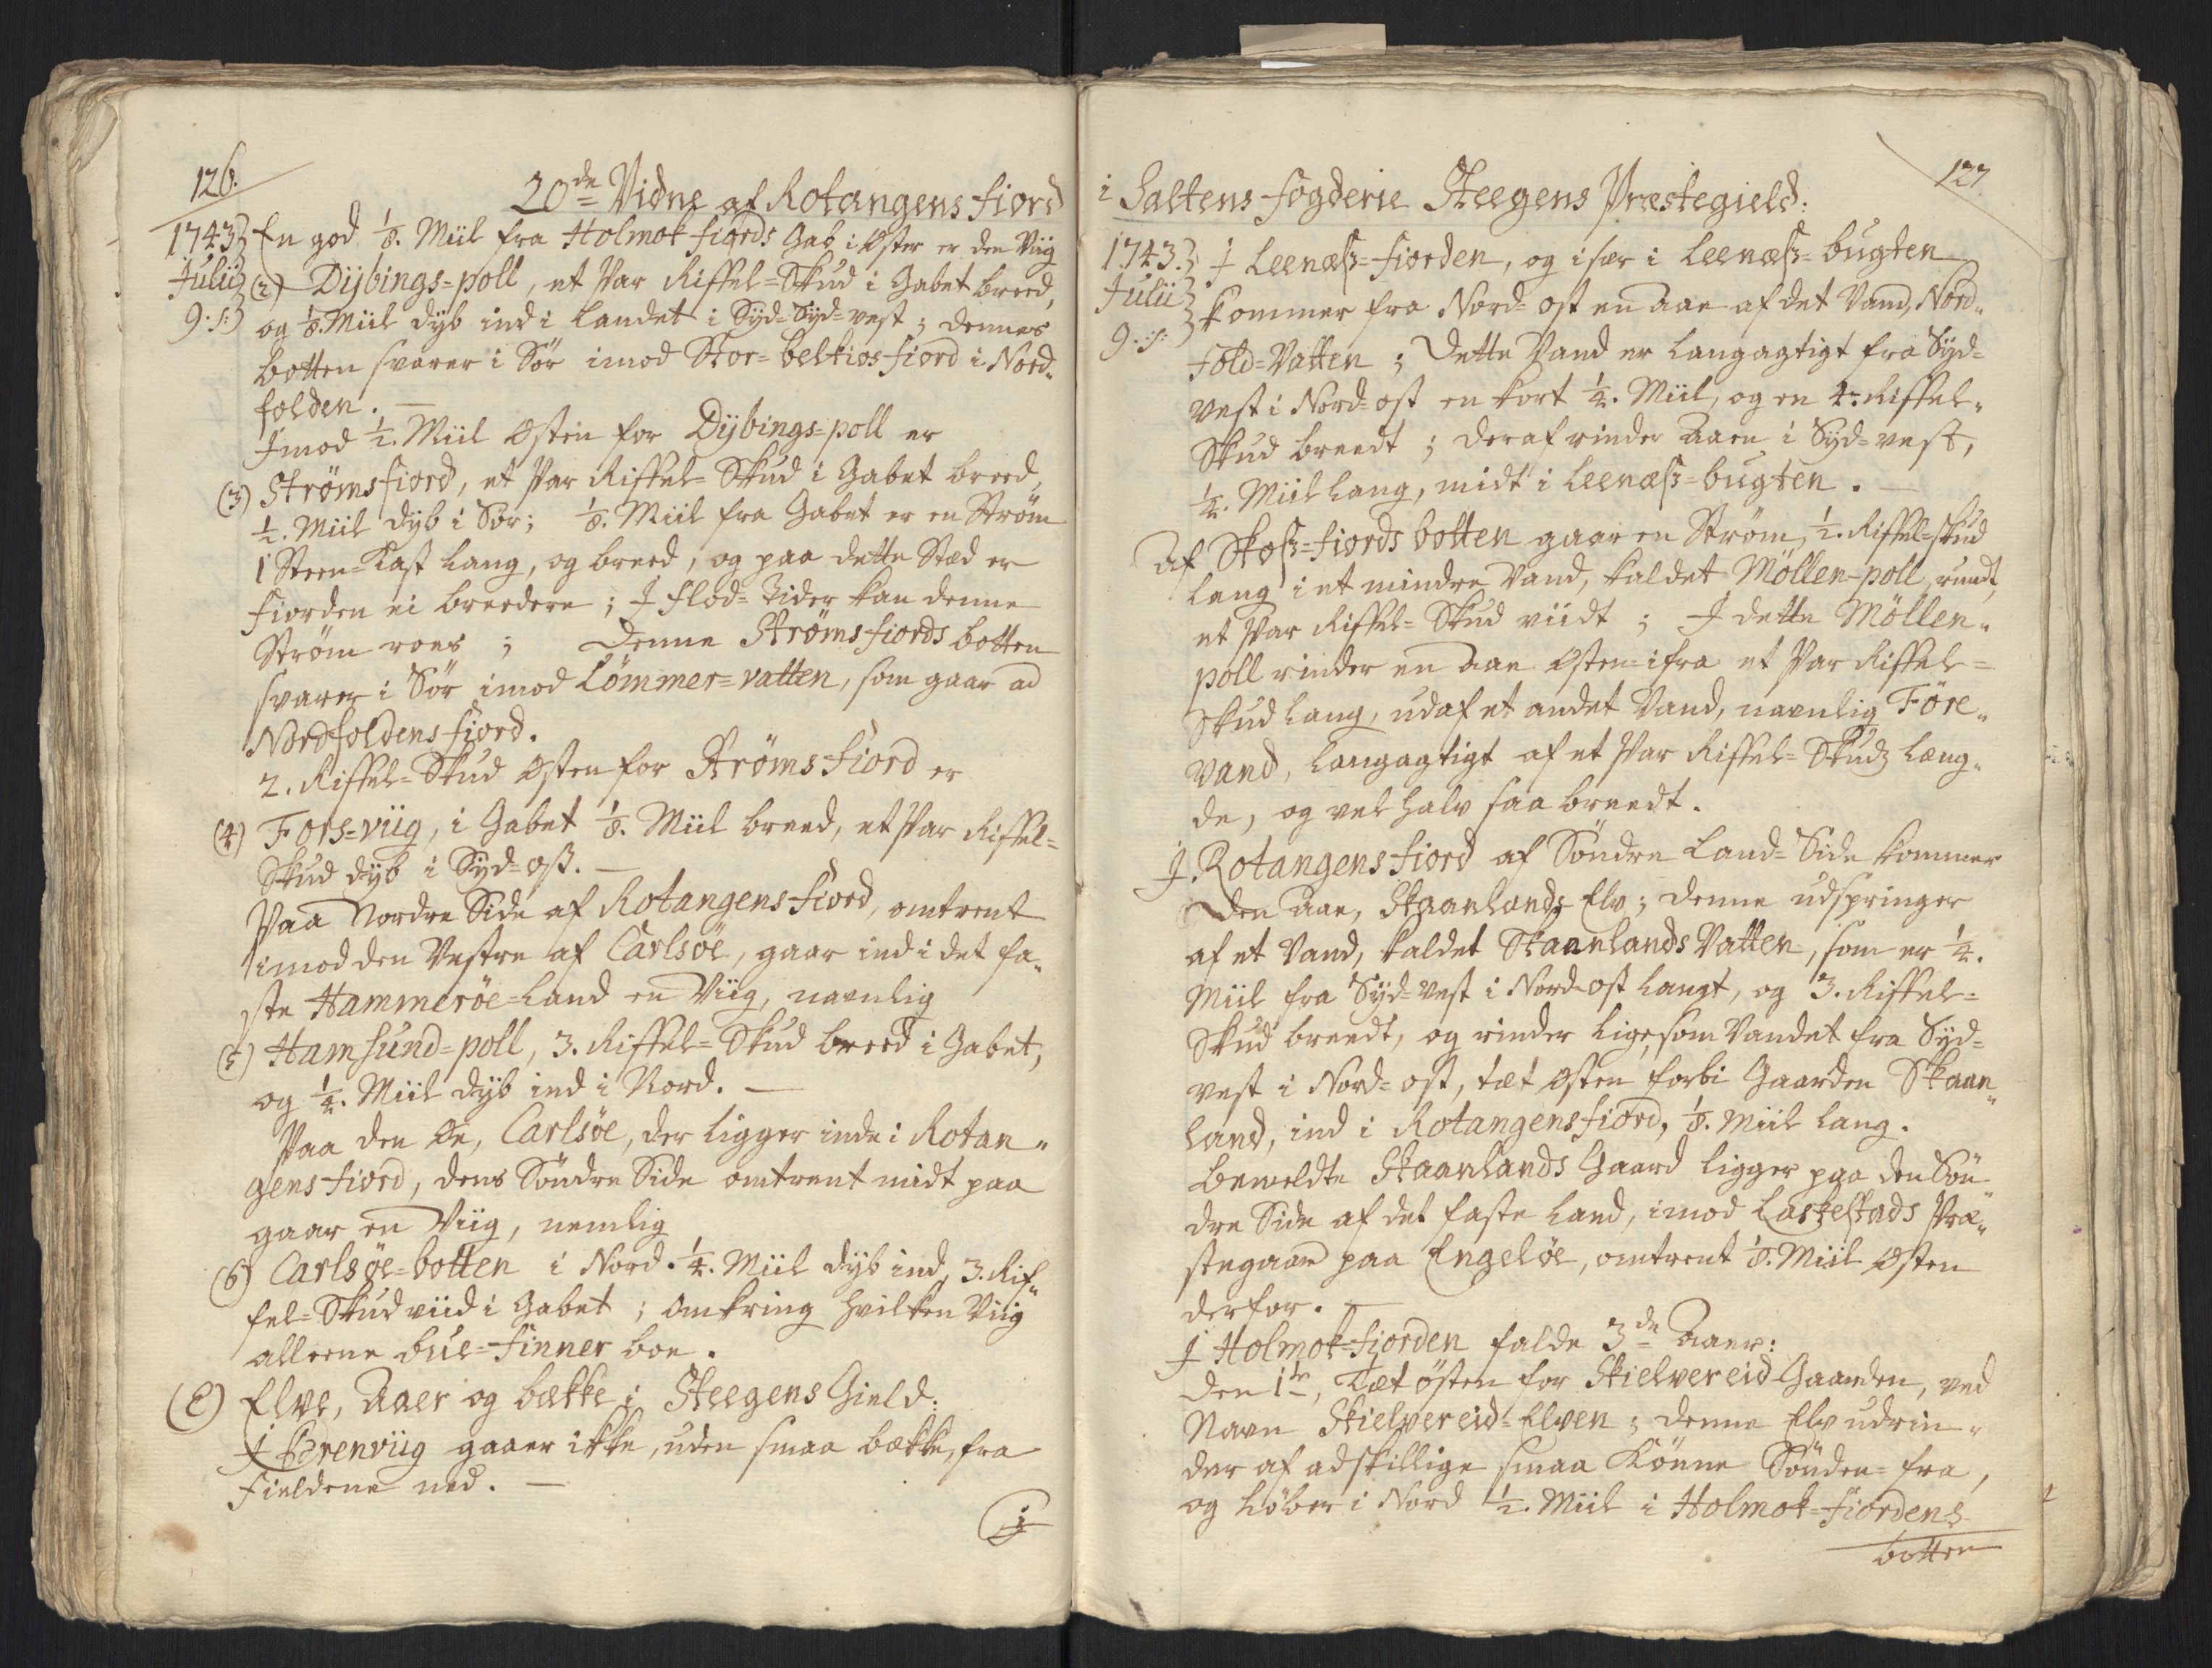 126.
20de Vidne af Rotangens fiord
1743
Julii
9. s:
En god 1/8. Miil fra Holmok fiords Gab i Øster er den Viig
(2) Dÿbings=poll, et Par Riffel=Skud i Gabet breed,
og 1/8. Miil dÿb ind i Landet i Sÿd=Sÿd=vest; dennes
botten svarer i Sör imod Stor=belkios fiord i Nord-
folden. —
Imod 1/2. Miil Østen for Dÿbings=poll er
(3) Strömsfiord, et Par Riffel=Skud i Gabet breed,
1/2. Miil dÿb i Sör; 1/8. Miil fra Gabet er en Ström
1 Steen=Kast lang, og breed, og paa dette Stæd er
fiorden ei breedere; I flod=Tider kan denne
Ström roes; Denne Ströms fiords botten
svarer i Sör imod Lömmer=vatten, som gaar ad
Nordfoldens fiord.
2. Riffel=Skud Østen for Ströms fiord er
(4) Fors=viig, i Gabet 1/8. Miil breed, et Par Riffel=
Skud dÿb i Sÿd=ost. —
Paa Nordre Side af Rotangens fiord, omtrent
imod den Vestre af Carlsöe, gaar ind i det fa-
ste Hammeröe=Land en Viig, navnlig
(5) Hamsund=poll, 3. Riffel=Skud breed i Gabet,
og 1/4. Miil dÿb ind i Nord. —
Paa den Øe, Carlsöe, der ligger inde i Rotan-
gens fiord, dens Söndre Side omtrent midt paa
gaar en Viig, nemlig
(6) Carlsöe=botten i Nord. 1/4. Miil dÿb ind, 3. Rif-
fel=Skud viid i Gabet; omkring hvilken Viig
alleene büe=finner boe.
(E) Elve, Aaer og bække i Steegens Gield:
I Brenviig gaaer ikke, uden smaa bække, fra
Fieldene ned. —
I
127.
i Saltens fogderie Steegens Præstegield:
1743.
Julii
9. s:
I Leenæss=fiorden, og især i Leenæss=bugten
kommer fra Nord=ost en Aae af det Vand, Nord-
fold=Vatten; Dette Vand er langagtigt fra Sÿd=
vest i Nord=ost en kort 1/4. Miil, og en 4. Riffel-
Skud breedt; deraf rinder Aaen i Sÿd=vest,
1/4. Miil lang, midt i Leenæss=bugten. —
Af Skoss=fiords botten gaar en Ström, 1/2. Riffel=skud
lang i et mindre Vand, kaldet Möllen=poll, rundt,
et Par Riffel=Skud viidt; I dette Möllen-
poll rinder en Aae Østen=ifra et Par Riffel=
Skud lang, ud af et andet Vand, navnlig Före-
vand, langagtigt af et Par Riffel=Skudz læng-
de, og vel halv saa breedt.
I Rotangens fiord af Söndre Land=Side kommer
den Aae, Skaanlands Elv; denne udspringer
af et Vand, kaldet Skaanlands Vatten, som er 1/4.
Miil fra Sÿd=vest i Nord=ost langt, og 3. Riffel=
Skud breedt, og rinder ligesom Vandet fra Sÿd=
vest i Nord=ost, tæt Østen forbi Gaarden Skaan-
land, ind i Rotangens fiord, 1/8. Miil lang.
bemeldte Skaanlands Gaard ligger paa den Sön-
dre Side af det faste Land, imod Laskestads Præ-
stegaard paa Engelöe, omtrent 1/8. Miil Østen
derfor. —
I Holmok=fiorden falde 3de Aaer:
Den 1te, Tæt östen for Skielvereid Gaarden, ved
Navn Skielvereid=Elven; denne Elv udrin-
der af adskillige smaa Könne Sönden=fra,
og löber i Nord 1/2. Miil i Holmok=fiordens
botten